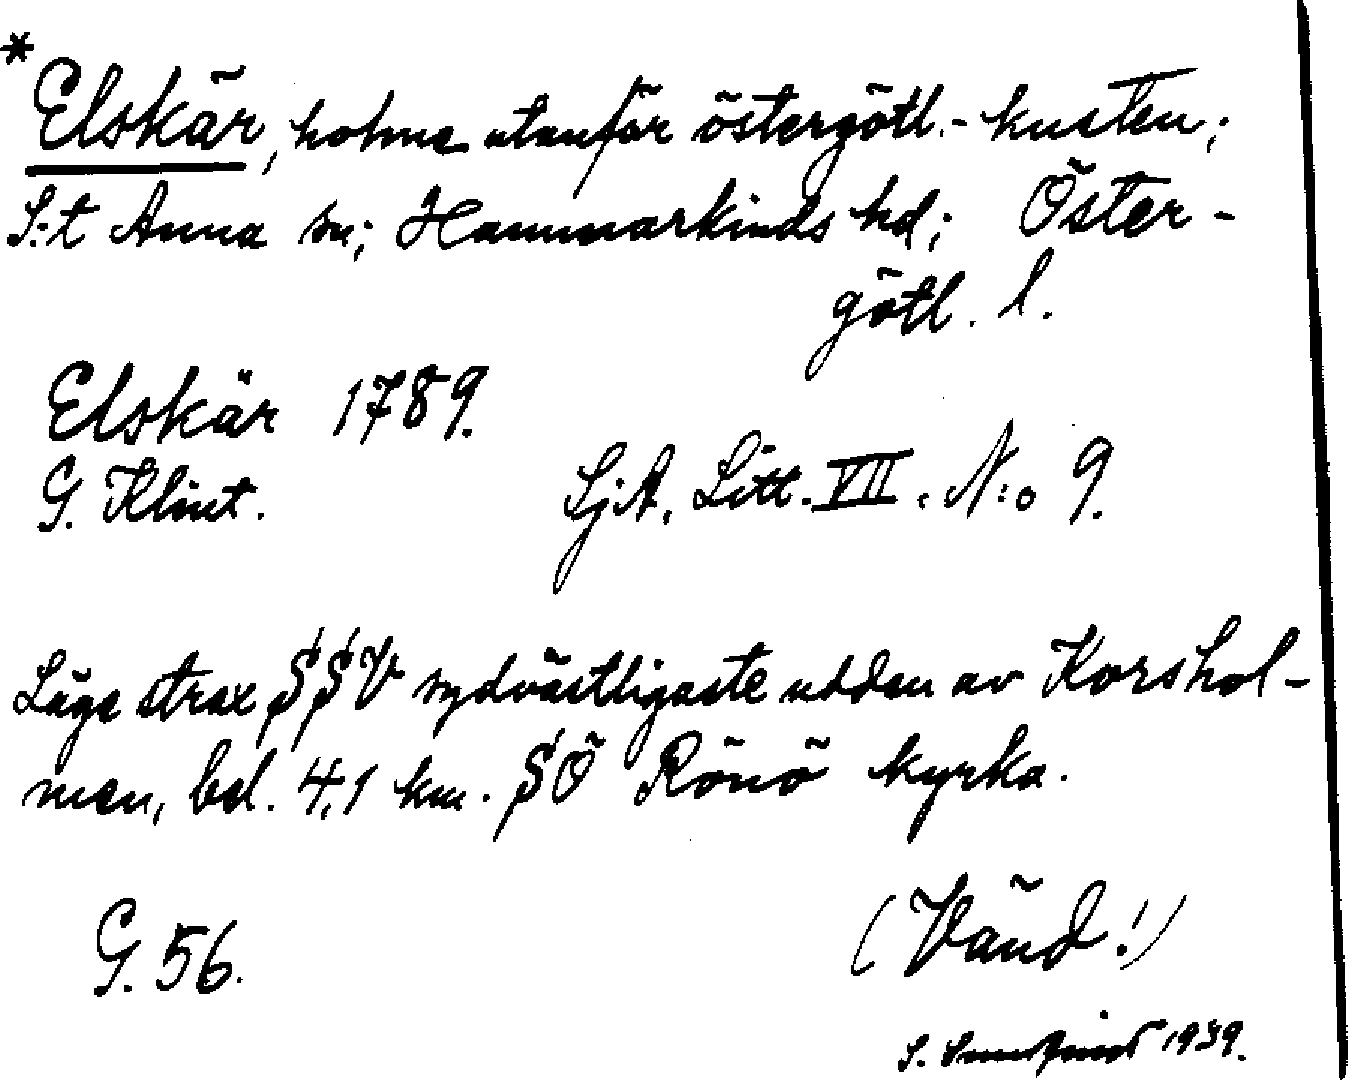 *
Elskär, holme utanför östergötl.- kusten;
S:t Anna sn; Hammarkinds hd; Öster-
götl. l.
Elskär 1789.
G. Klint. SjA. Litt. VII. N:o 9.
Läge strax SSV sydvästligaste udden av Korshol-
men, bel. 4,1 km. SÖ Rönö kyrka.
G. 56. (Vänd!)
S. 1939.